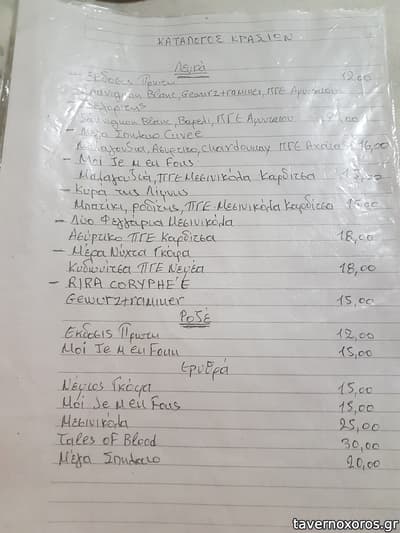 ΚΑΤΑΛΟΓΟΣ ΚΡΑΣΙΩΝ
Λευκά
- Εκδοσις Πρωτη 12,00
Blanc, Gewurztraminer, ΠΓΕ
Sauvignon Blanc, Βαρελι, ΠΓΕ Αμυνταιου
- Μεγα Σπηλαιο Cuvee
Μαλαγουδια, Ασυρτικο, Chardonnay ΠΓΕ Αχαια 16,00
- Moi Je m'en Fous
Μαλαγουδιά, ΠΓΕ Μεσινικόλα Καρδίτσα
- Κυρά της Λίμνης
Μπατίκι, ροδίτης, ΠΓΕ Μεσινικόλα Καρδίτσα 15,00
- Δύο Φεγγάρια Μεσινικόλα
Ασύρτικο ΠΓΕ Καρδίτσα 18,00
- Μέρα Νύχτα Γκόφα
Κυδωνίτσα ΠΓΕ Νεμέα 18,00
- RIRA CORYPHÉE
Gewurztraminer 15,00
Ροζέ
Εκδοσις Πρωτη 12,00
Moi Je m en Fous 15,00
Ερυθρά
Νέμιος Γκόφα 15,00
Moi Je m en Fous 15,00
Μεσινικόλα 25,00
Tales of Blood 30,00
Μέγα Σπηλαιο 20,00
tavernoxoros.gr